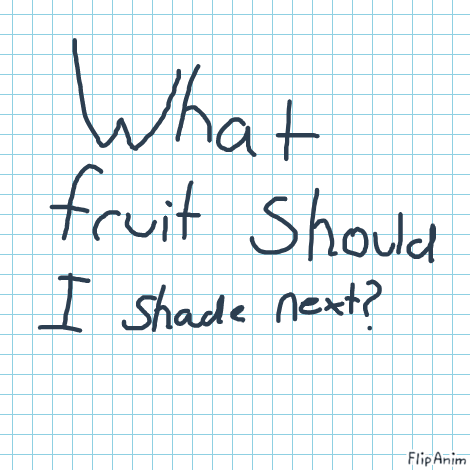 What
fruit Should
I shade next?
FlipAnim